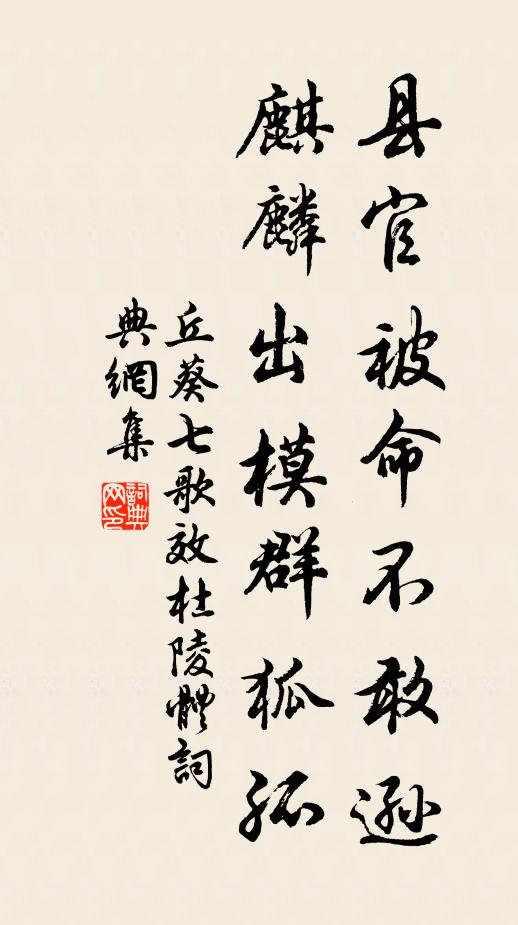 县官被命不敢逊
麒麟出模群狐孤
丘葵七歌效杜陵體詞
典網集
詞典
网印